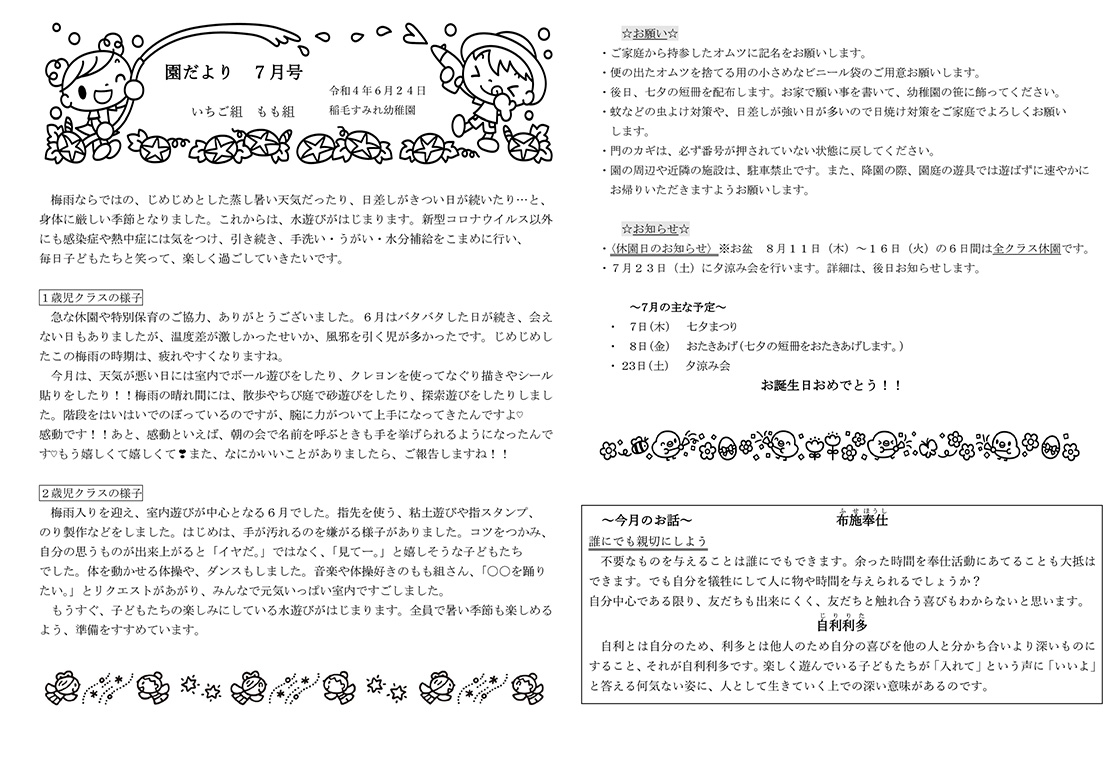 園だより　７月号
令和４年６月２４日
いちご組　もも組
稲毛すみれ幼稚園
梅雨ならではの、じめじめとした蒸し暑い天気だったり、日差しがきつい日が続いたり…と、
身体に厳しい季節となりました。これからは、水遊びがはじまります。新型コロナウイルス以外
にも感染症や熱中症には気をつけ、引き続き、手洗い・うがい・水分補給をこまめに行い、
毎日子どもたちと笑って、楽しく過ごしていきたいです。
１歳児クラスの様子
急な休園や特別保育のご協力、ありがとうございました。６月はバタバタした日が続き、会え
ない日もありましたが、温度差が激しかったせいか、風邪を引く児が多かったです。じめじめし
たこの梅雨の時期は、疲れやすくなりますね。
今月は、天気が悪い日には室内でボール遊びをしたり、クレヨンを使ってなぐり描きやシール
貼りをしたり！！梅雨の晴れ間には、散歩やちび庭で砂遊びをしたり、探索遊びをしたりしまし
た。階段をはいはいでのぼっているのですが、腕に力がついて上手になってきたんですよ♡
感動です！！あと、感動といえば、朝の会で名前を呼ぶときも手を挙げられるようになったんで
す♡もう嬉しくて嬉しくて❣また、なにかいいことがありましたら、ご報告しますね！！
２歳児クラスの様子
梅雨入りを迎え、室内遊びが中心となる６月でした。指先を使う、粘土遊びや指スタンプ、
のり製作などをしました。はじめは、手が汚れるのを嫌がる様子がありました。コツをつかみ、
自分の思うものが出来上がると「イヤだ。」ではなく、「見てー。」と嬉しそうな子どもたち
でした。体を動かせる体操や、ダンスもしました。音楽や体操好きのもも組さん、「〇〇を踊り
たい。」とリクエストがあがり、みんなで元気いっぱい室内ですごしました。
もうすぐ、子どもたちの楽しみにしている水遊びがはじまります。全員で暑い季節も楽しめる
よう、準備をすすめています。
☆お願い☆
・ご家庭から持参したオムツに記名をお願いします。
・便の出たオムツを捨てる用の小さめなビニール袋のご用意お願いします。
・後日、七夕の短冊を配布します。お家で願い事を書いて、幼稚園の笹に飾ってください。
・蚊などの虫よけ対策や、日差しが強い日が多いので日焼け対策をご家庭でよろしくお願い
します。
・門のカギは、必ず番号が押されていない状態に戻してください。
・園の周辺や近隣の施設は、駐車禁止です。また、降園の際、園庭の遊具では遊ばずに速やかに
お帰りいただきますようお願いします。
☆お知らせ☆
・〈休園日のお知らせ〉※お盆　８月１１日（木）～１６日（火）の６日間は全クラス休園です。
・７月２３日（土）に夕涼み会を行います。詳細は、後日お知らせします。
～7月の主な予定～
・　7日(木)　七夕まつり
・　8日(金)　おたきあげ(七夕の短冊をおたきあげします。)
・ 23日(土)　夕涼み会
お誕生日おめでとう！！
～今月のお話～　布施奉仕
ふせほうし
誰にでも親切にしよう
不要なものを与えることは誰にでもできます。余った時間を奉仕活動にあてることも大抵は
できます。でも自分を犠牲にして人に物や時間を与えられるでしょうか？
自分中心である限り、友だちも出来にくく、友だちと触れ合う喜びもわからないと思います。
じりりた
自利利多
自利とは自分のため、利多とは他人のため自分の喜びを他の人と分かち合いより深いものに
すること、それが自利利多です。楽しく遊んでいる子どもたちが「入れて」という声に「いいよ」
と答える何気ない姿に、人として生きていく上での深い意味があるのです。